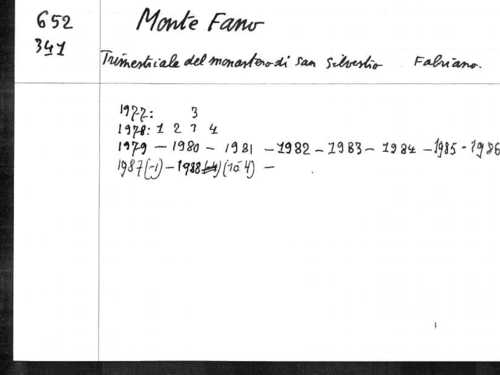 652
341
Monte Fano
Trimestriale del monastero di San Silvestro Fabriano.
1977: 3
1978: 1 2 3 4
1979 - 1980 - 1981 - 1982 - 1983 - 1984 - 1985 - 1986
1987 (-1) - 1988 (10 4) -